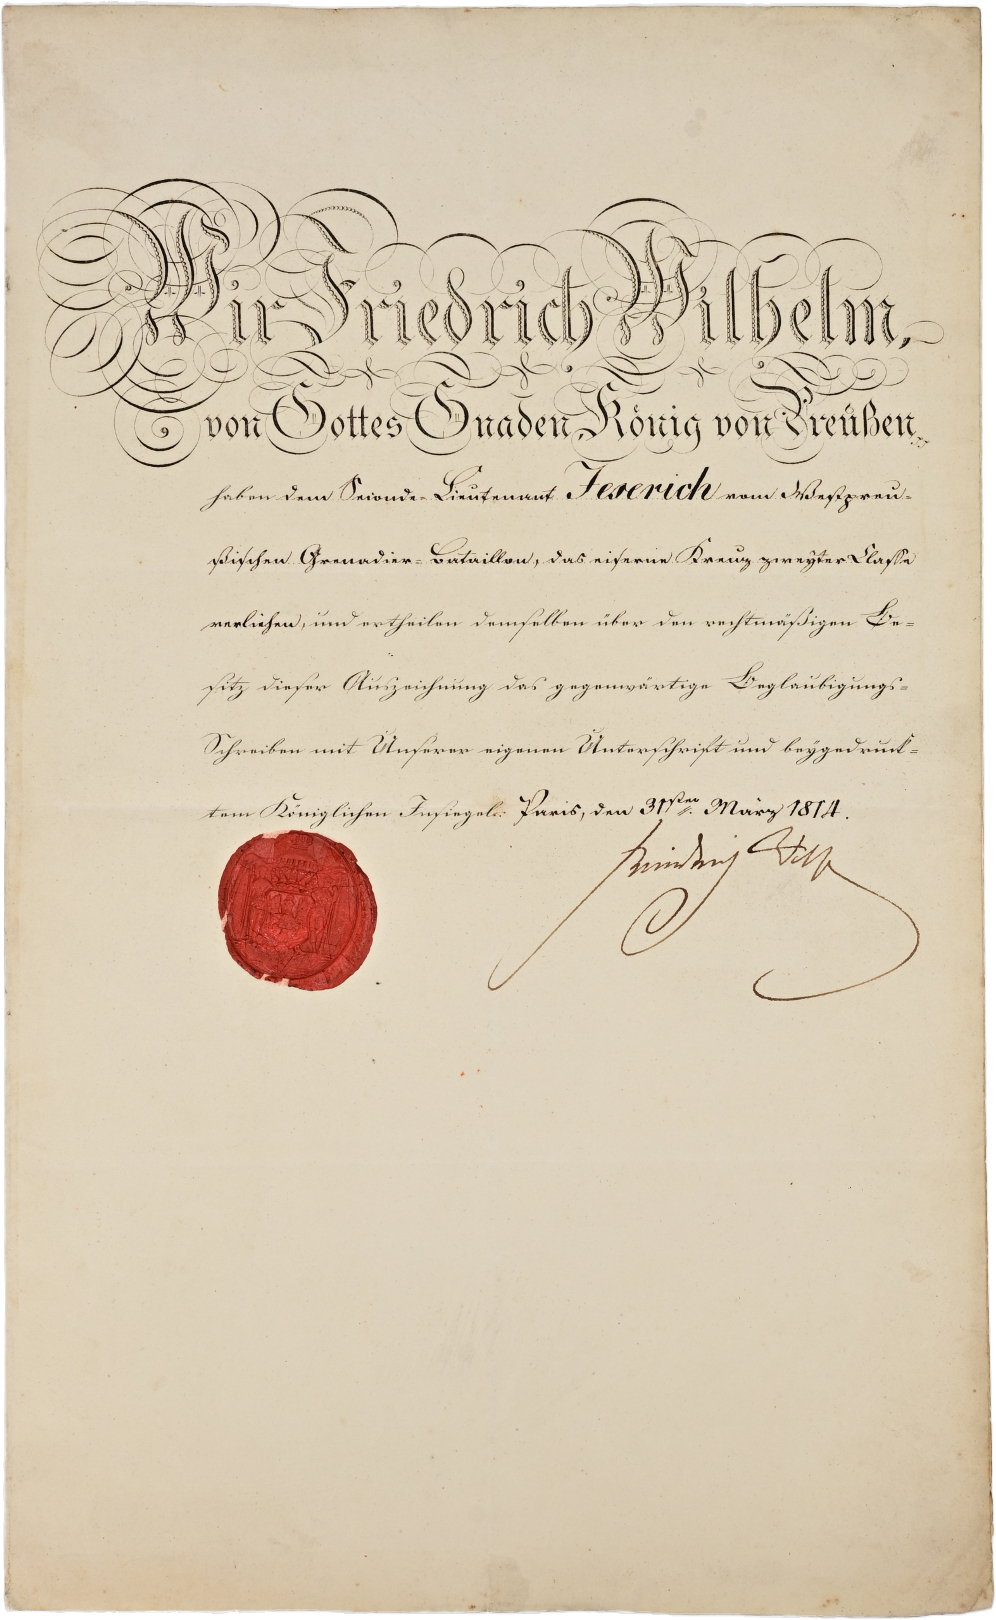 Wir Friedrich Wilhelm,
von Gottes Gnaden König von Preußen
haben dem Seconde-Lieutenant Jeserich vom Westpreu-
ßischen Grenadier-Bataillon, das eiserne Kreuz zweyter Classe
verliehen, und ertheilen demselben über den rechtmäßigen Be-
sitz dieser Auszeichnung das gegenwärtige Beglaubigungs-
Schreiben mit Unserer eigenen Unterschrift und beygedruck-
tem Königlichen Insiegel. Paris, den 31sten März 1814.
Friedrich Wilh